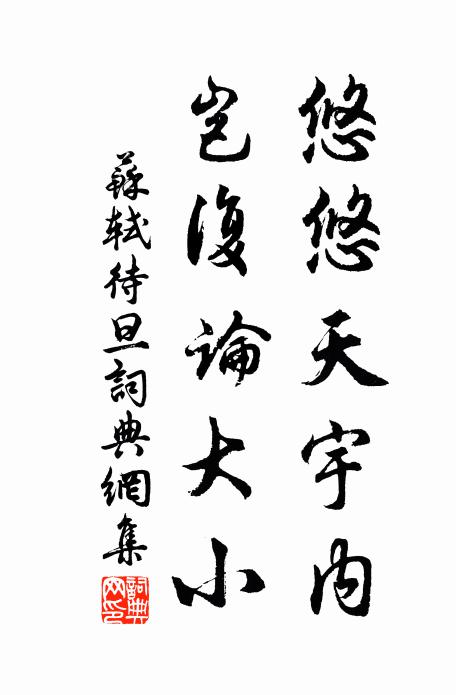 悠悠天宇内
岂復論大小
蘇軾待旦詞典網集
詞典网印